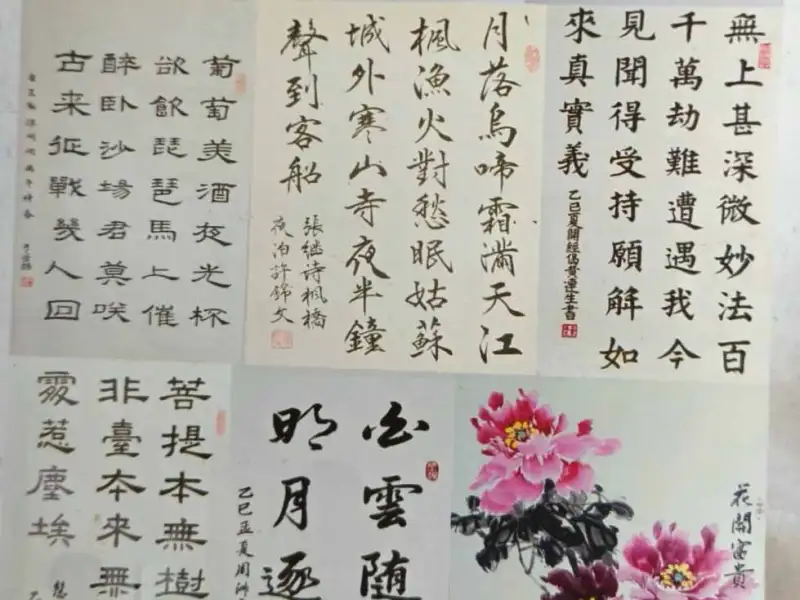 無上甚深微妙法百
千萬劫難遭遇我今
見聞得受持願解如
來真實義
乙巳夏開經偈黄運生書
月落烏啼霜滿天江
楓漁火對愁眠姑蘇
城外寒山寺夜半鐘
聲到客船
張继诗楓橋
夜泊許錦文
葡萄美酒夜光杯
欲飲琵琶馬上催
醉卧沙場君莫咲
古来征戰幾人回
花開富貴
白雲随
明月逐
乙巳孟夏周
菩提本無樹
非臺本来無
處惹塵埃